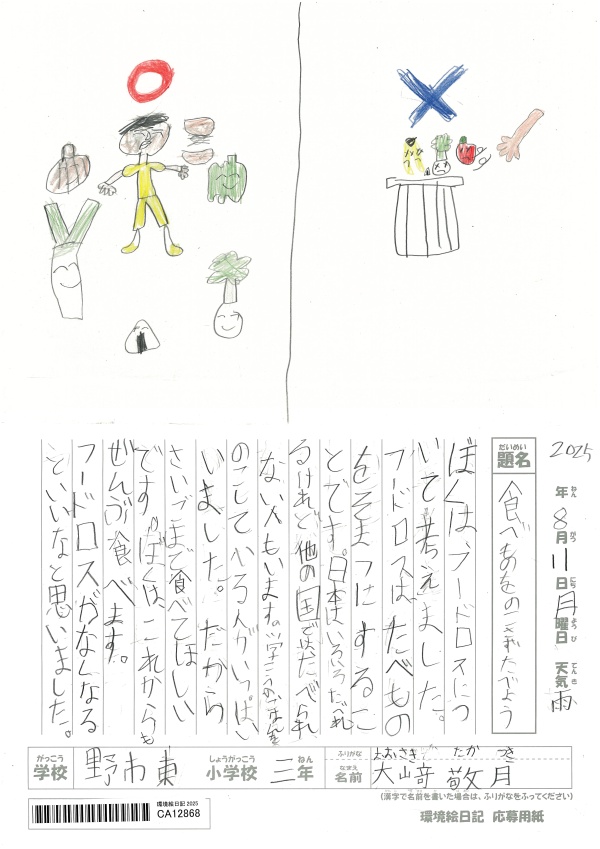 2025
年 8月11日月曜日 天気雨
ねん がつ にち ようび てんき
だいめい
題名
食べものをのこさずたべよう
ぼくは、フードロスにつ
いて考えました。
フードロスは、たべもの
をそまつにするこ
とです。日本はいろいろたべれ
るけれど他の国ではたべられ
ない人もいます。学こうのごはんを
のこしている人がいっぱい
いました。だから
さいごまで食べてほしい
です。ぼくは、これからも
ぜんぶ食べます。
フードロスがなくなる
といいなと思いました。
がっこう
学校
野市東
しょうがっこう
小学校
三年
ねん
ふりがな
おおさき たかつき
なまえ
名前
大﨑 敬月
(漢字で名前を書いた場合は、ふりがなをふってください)
環境絵日記 2025
CA12868
環境絵日記 応募用紙